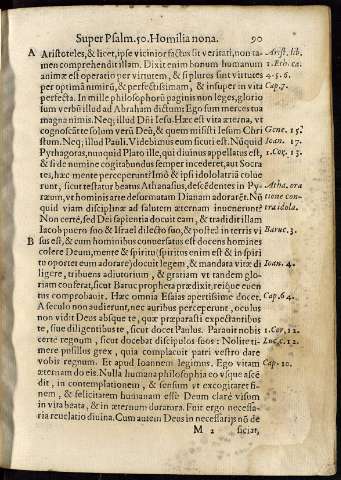 Super Psalm. 50. Homilia nona. 90
A Aristoteles, & licet, ipse vicinior factus sit veritati, non ta- Arist. lib.
men comprehendit illam. Dixit enim bonum humanum 1. Eth. ca.
animæ est operatio per virtutem, & si plures sunt virtutes 4.5.6.
per optimã nimirũ, & perfectissimam, & insuper in vita Cap. 7.
perfecta. In mille philosophorũ paginis non leges, glorio
sum verbũ illud ad Abraham dictum: Ego sum merces tua
magna nimis. Neq; illud Dñi Iesu: Hæc est vita æterna, vt
cognoscãt te solum verũ Deũ, & quem misisti Iesum Chri Gene. 15.
stum. Neq; illud Pauli. Videbimus eum sicuti est. Nũquid Ioan. 17.
Pythagoras, nunquid Plato ille, qui diuinus appellatus est, 1. Cor. 13.
& si de numine cogitabundus semper incederet, aut Socra
tes, hæc mente perceperunt? Imò & ipsi idololatriã colue
runt, sicut testatur beatus Athanasius, descẽdentes in Py- Atha. ora
ræum, vt hominis arte deformatam Dianam adorarẽt. Nũ tione con-
quid viam disciplinæ ad salutem æternam inuenerunt? tra idola.
Non certè, sed Dei sapientia docuit eam, & tradidit illam
Iacob puero suo & Israel dilecto suo, & posteà in terris vi Baruc. 3.
B sus est, & cum hominibus conuersatus est docens homines
colere Deum, mente & spiritu (spiritus enim est & in spiri
tu oportet eum adorare) docuit legem, & mandata vitæ di Ioan. 4.
ligere, tribuens adiutorium, & gratiam vt tandem glo-
riam conferat, sicut Baruc propheta prædixit, reiq́ue euen
tus comprobauit. Hæc omnia Esaias apertissime docet. Cap. 64.
A seculo non audierunt, nec auribus perceperunt, oculus
non vidit Deus absque te, quæ præparasti expectantibus
te, siue diligentibus te, sicut docet Paulus. Parauit nobis 1. Cor. 12.
certe regnum, sicut docebat discipulos suos: Nolite ti- Luc. c. 12.
mere pusillus grex, quia complacuit patri vestro dare
vobis regnum. Et apud Ioannem legimus. Ego vitam Cap. 10.
æternam do eis. Nulla humana philosophia eo vsque ascẽ
dit, in contemplationem, & sensum vt excogitaret fi-
nem, & felicitatem humanam esse Deum clarè visum
in vita beata, & in æternum duratura. Fuit ergo necessa-
ria reuelatio diuina. Cum autem Deus in necessarijs nõ de
M 2 ficiat,